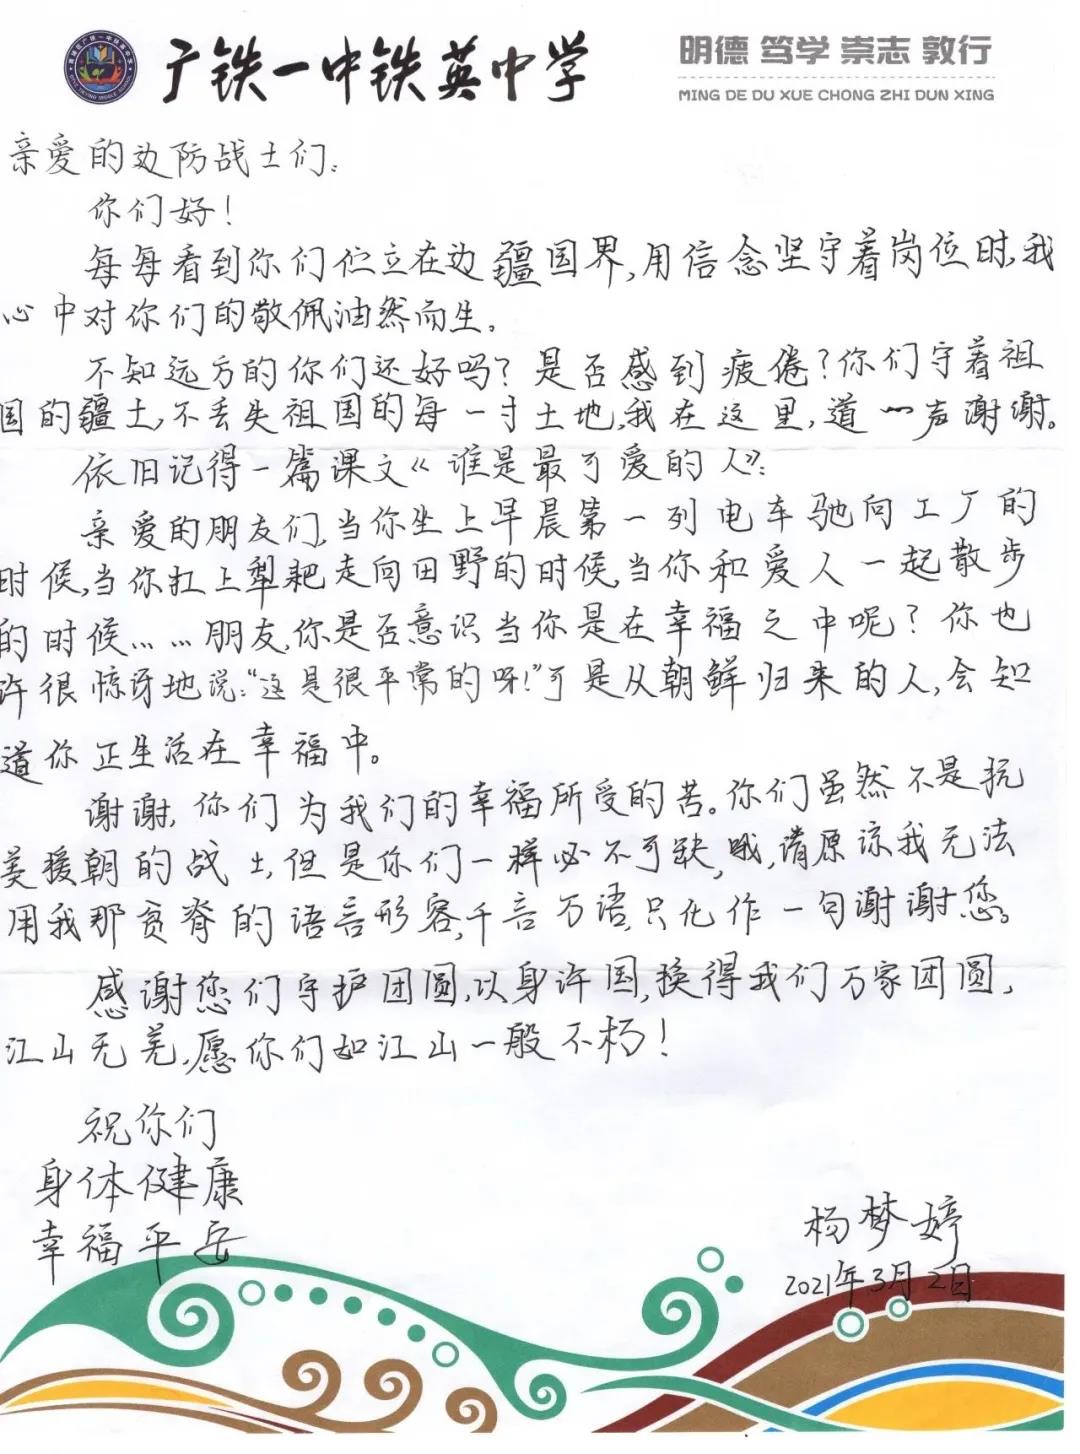 广铁一中铁英中学
明德 笃学 崇志 敦行
MING DE DU XUE CHONG ZHI DUN XING
亲爱的边防战士们:
你们好!
每每看到你们伫立在边疆国界,用信念坚守着岗位时,我
心中对你们的敬佩油然而生。
不知远方的你们还好吗?是否感到疲倦?你们守着祖
国的疆土,不丢失祖国的每一寸土地,我在这里,道一声谢谢。
依旧记得一篇课文《谁是最可爱的人》:
亲爱的朋友们,当你坐上早晨第一列电车驰向工厂的
时候,当你扛上犁耙走向田野的时候,当你和爱人一起散步
的时候……朋友,你是否意识当你是在幸福之中呢?你也
许很惊讶地说:“这是很平常的呀!”可是从朝鲜归来的人,会知
道你正生活在幸福中。
谢谢,你们为我们的幸福所受的苦。你们虽然不是抗
美援朝的战士,但是你们一样必不可缺,哦,请原谅我无法
用我那贫脊的语言形容,千言万语,只化作一句谢谢您。
感谢您们守护团圆,以身许国,换得我们万家团圆,
江山无羌,愿你们如江山一般不朽!
祝你们
身体健康
幸福平安
杨梦婷
2021年3月2日